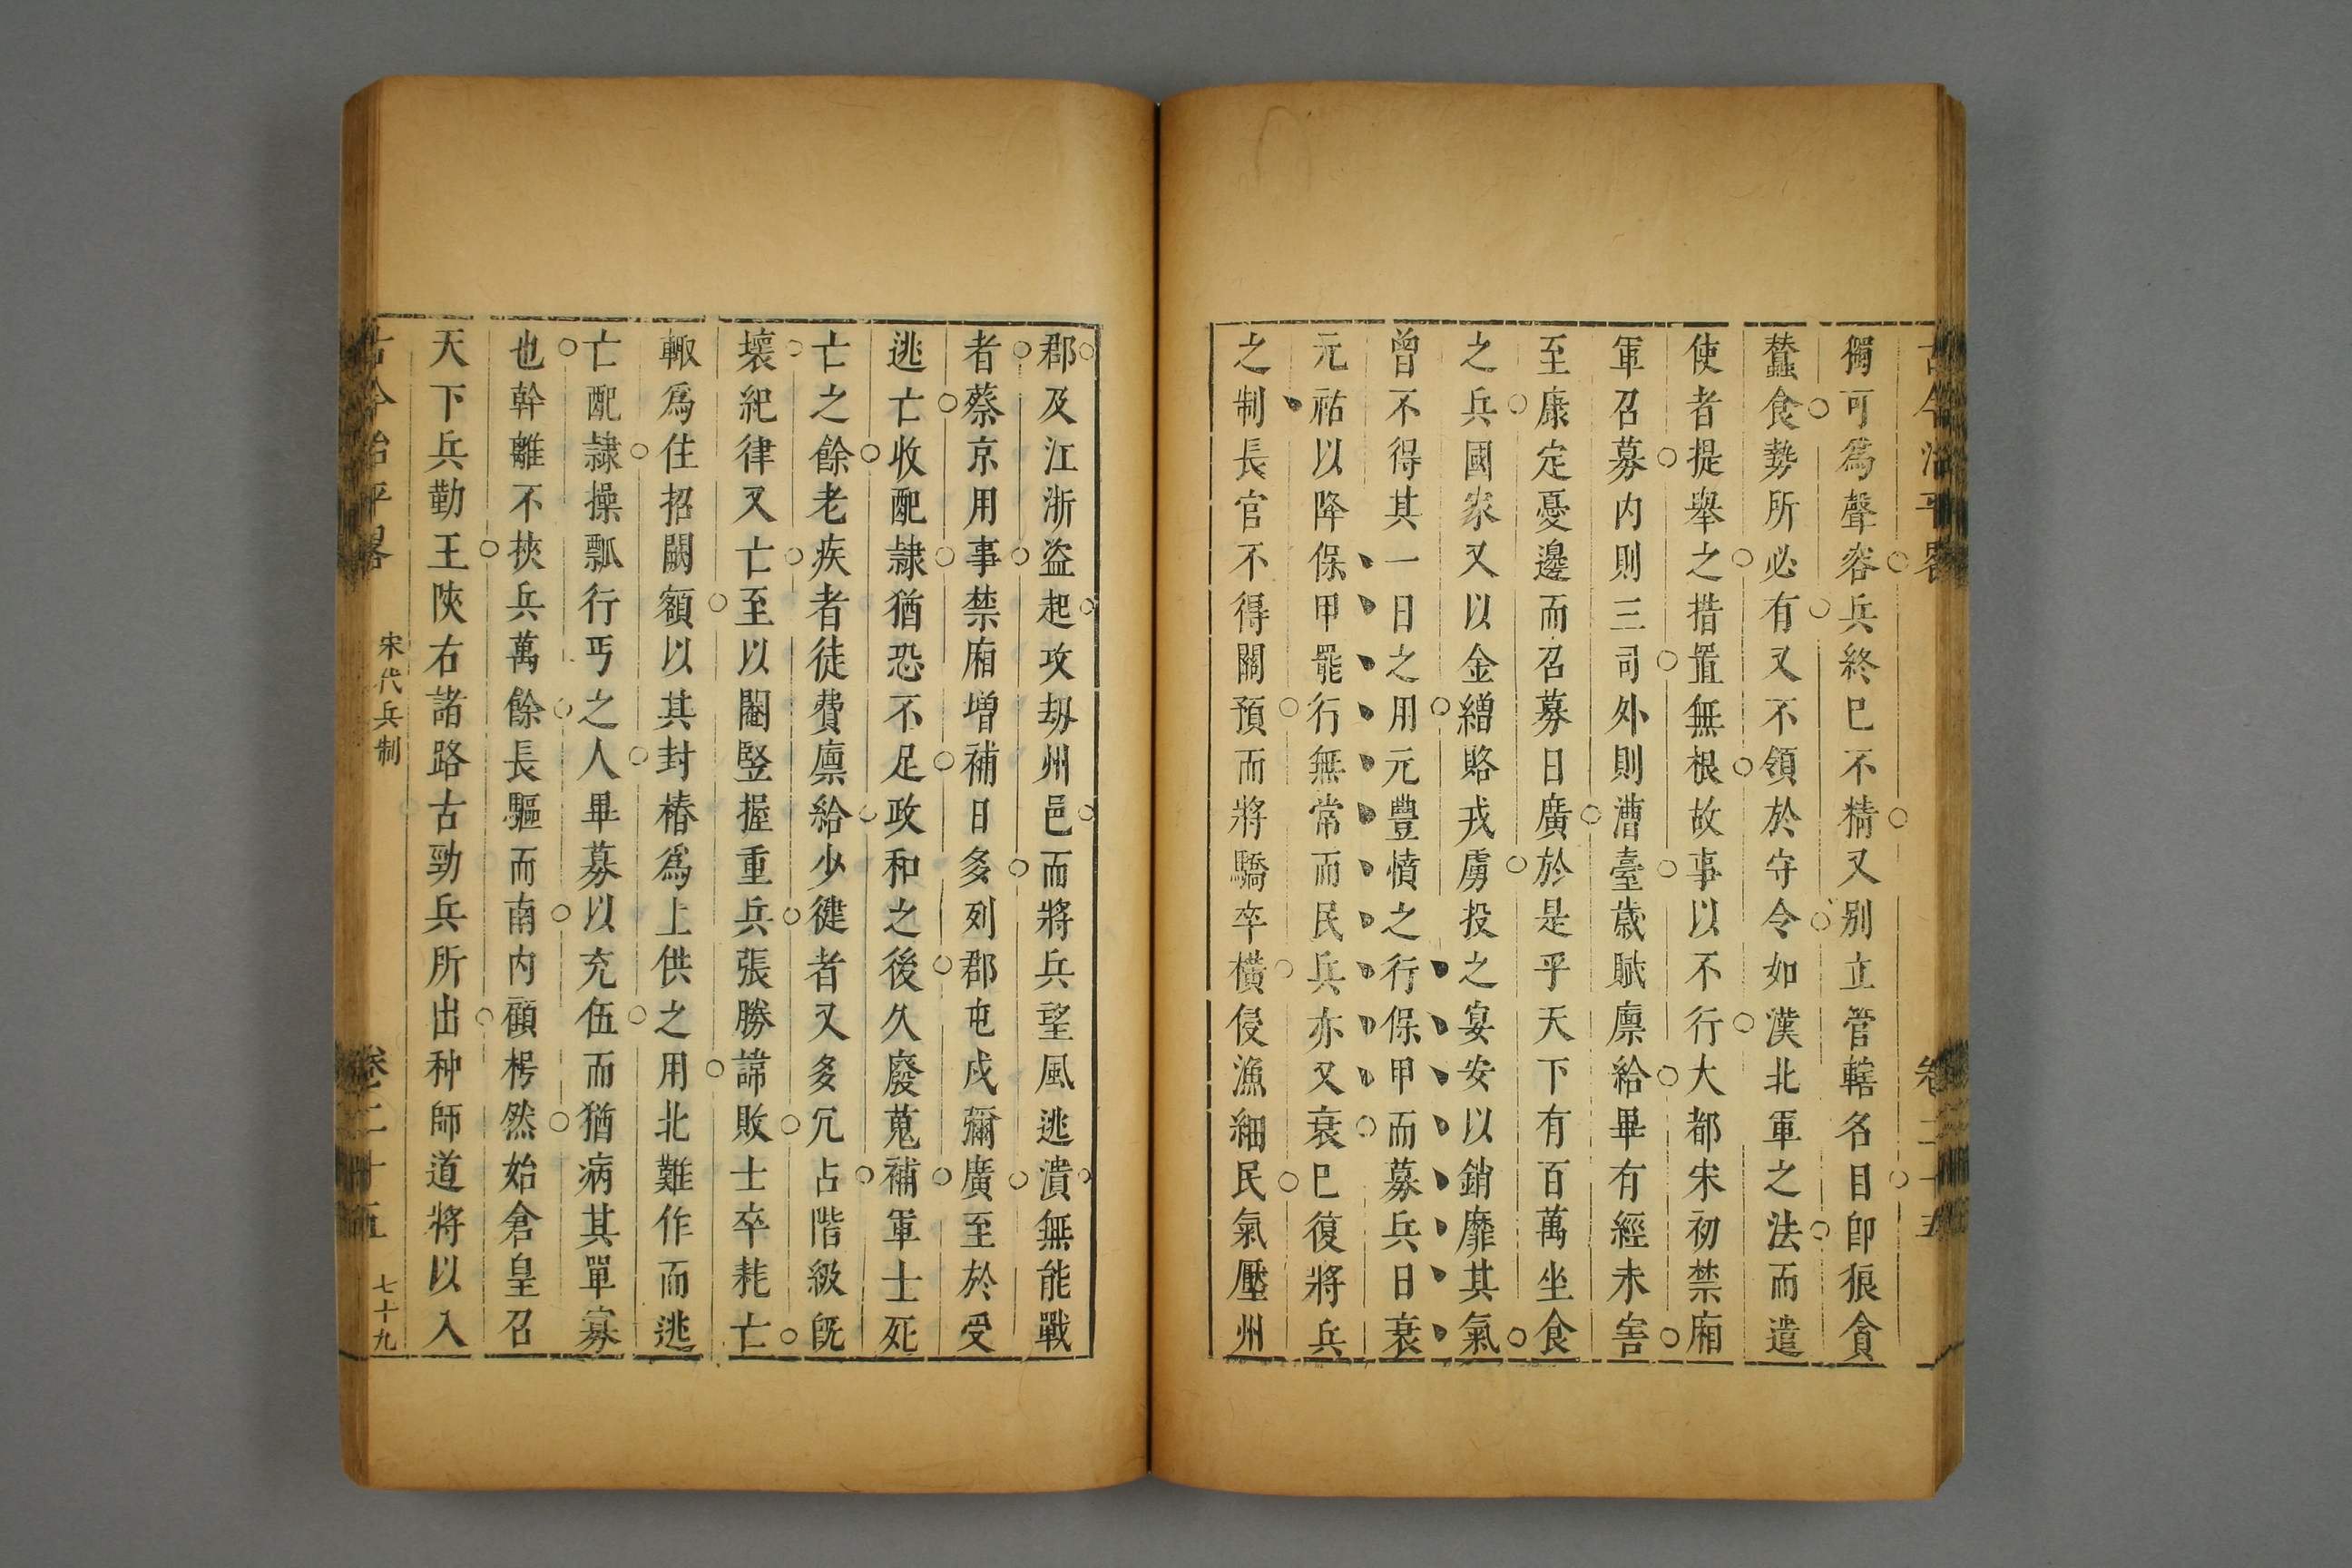 古今治平畧 卷二十五
獨可爲聲容兵終巳不精又别立管轄名目卽狼貪
蠶食勢所必有又不領於守令如漢北軍之法而遣
使者提舉之措置無根故事以不行大都宋初禁廂
軍召募内則三司外則漕臺歲賦廪給畢有經未害
至康定憂邊而召募日廣於是乎天下有百萬坐食
之兵國家又以金繒賂戎虜投之宴安以銷靡其氣
曾不得其一日之用元豐憤之行保甲而募兵日衰
元祐以降保甲罷行無常而民兵亦又衰巳復將兵
之制長官不得關預而將驕卒橫侵漁細民氣壓州
郡及江浙盜起攻刼州邑而將兵望風逃潰無能戰
者蔡京用事禁廂增補日多列郡屯戍彌廣至於受
逃亡收配隷猶恐不足政和之後久廢蒐補軍士死
亡之餘老疾者徒費廪給少健者又多冗占階級旣
壞紀律又亡至以閹竪握重兵張勝諱敗士卒耗亡
輙爲住招闕額以其封樁爲上供之用北難作而逃
亡配隷操瓢行丐之人畢募以充伍而猶病其單寡
也幹離不挾兵萬餘長驅而南内顧枵然始倉皇召
天下兵勤王陜右諸路古勁兵所出种師道將以入
古今治平畧 宋代兵制 卷二十五 七十九